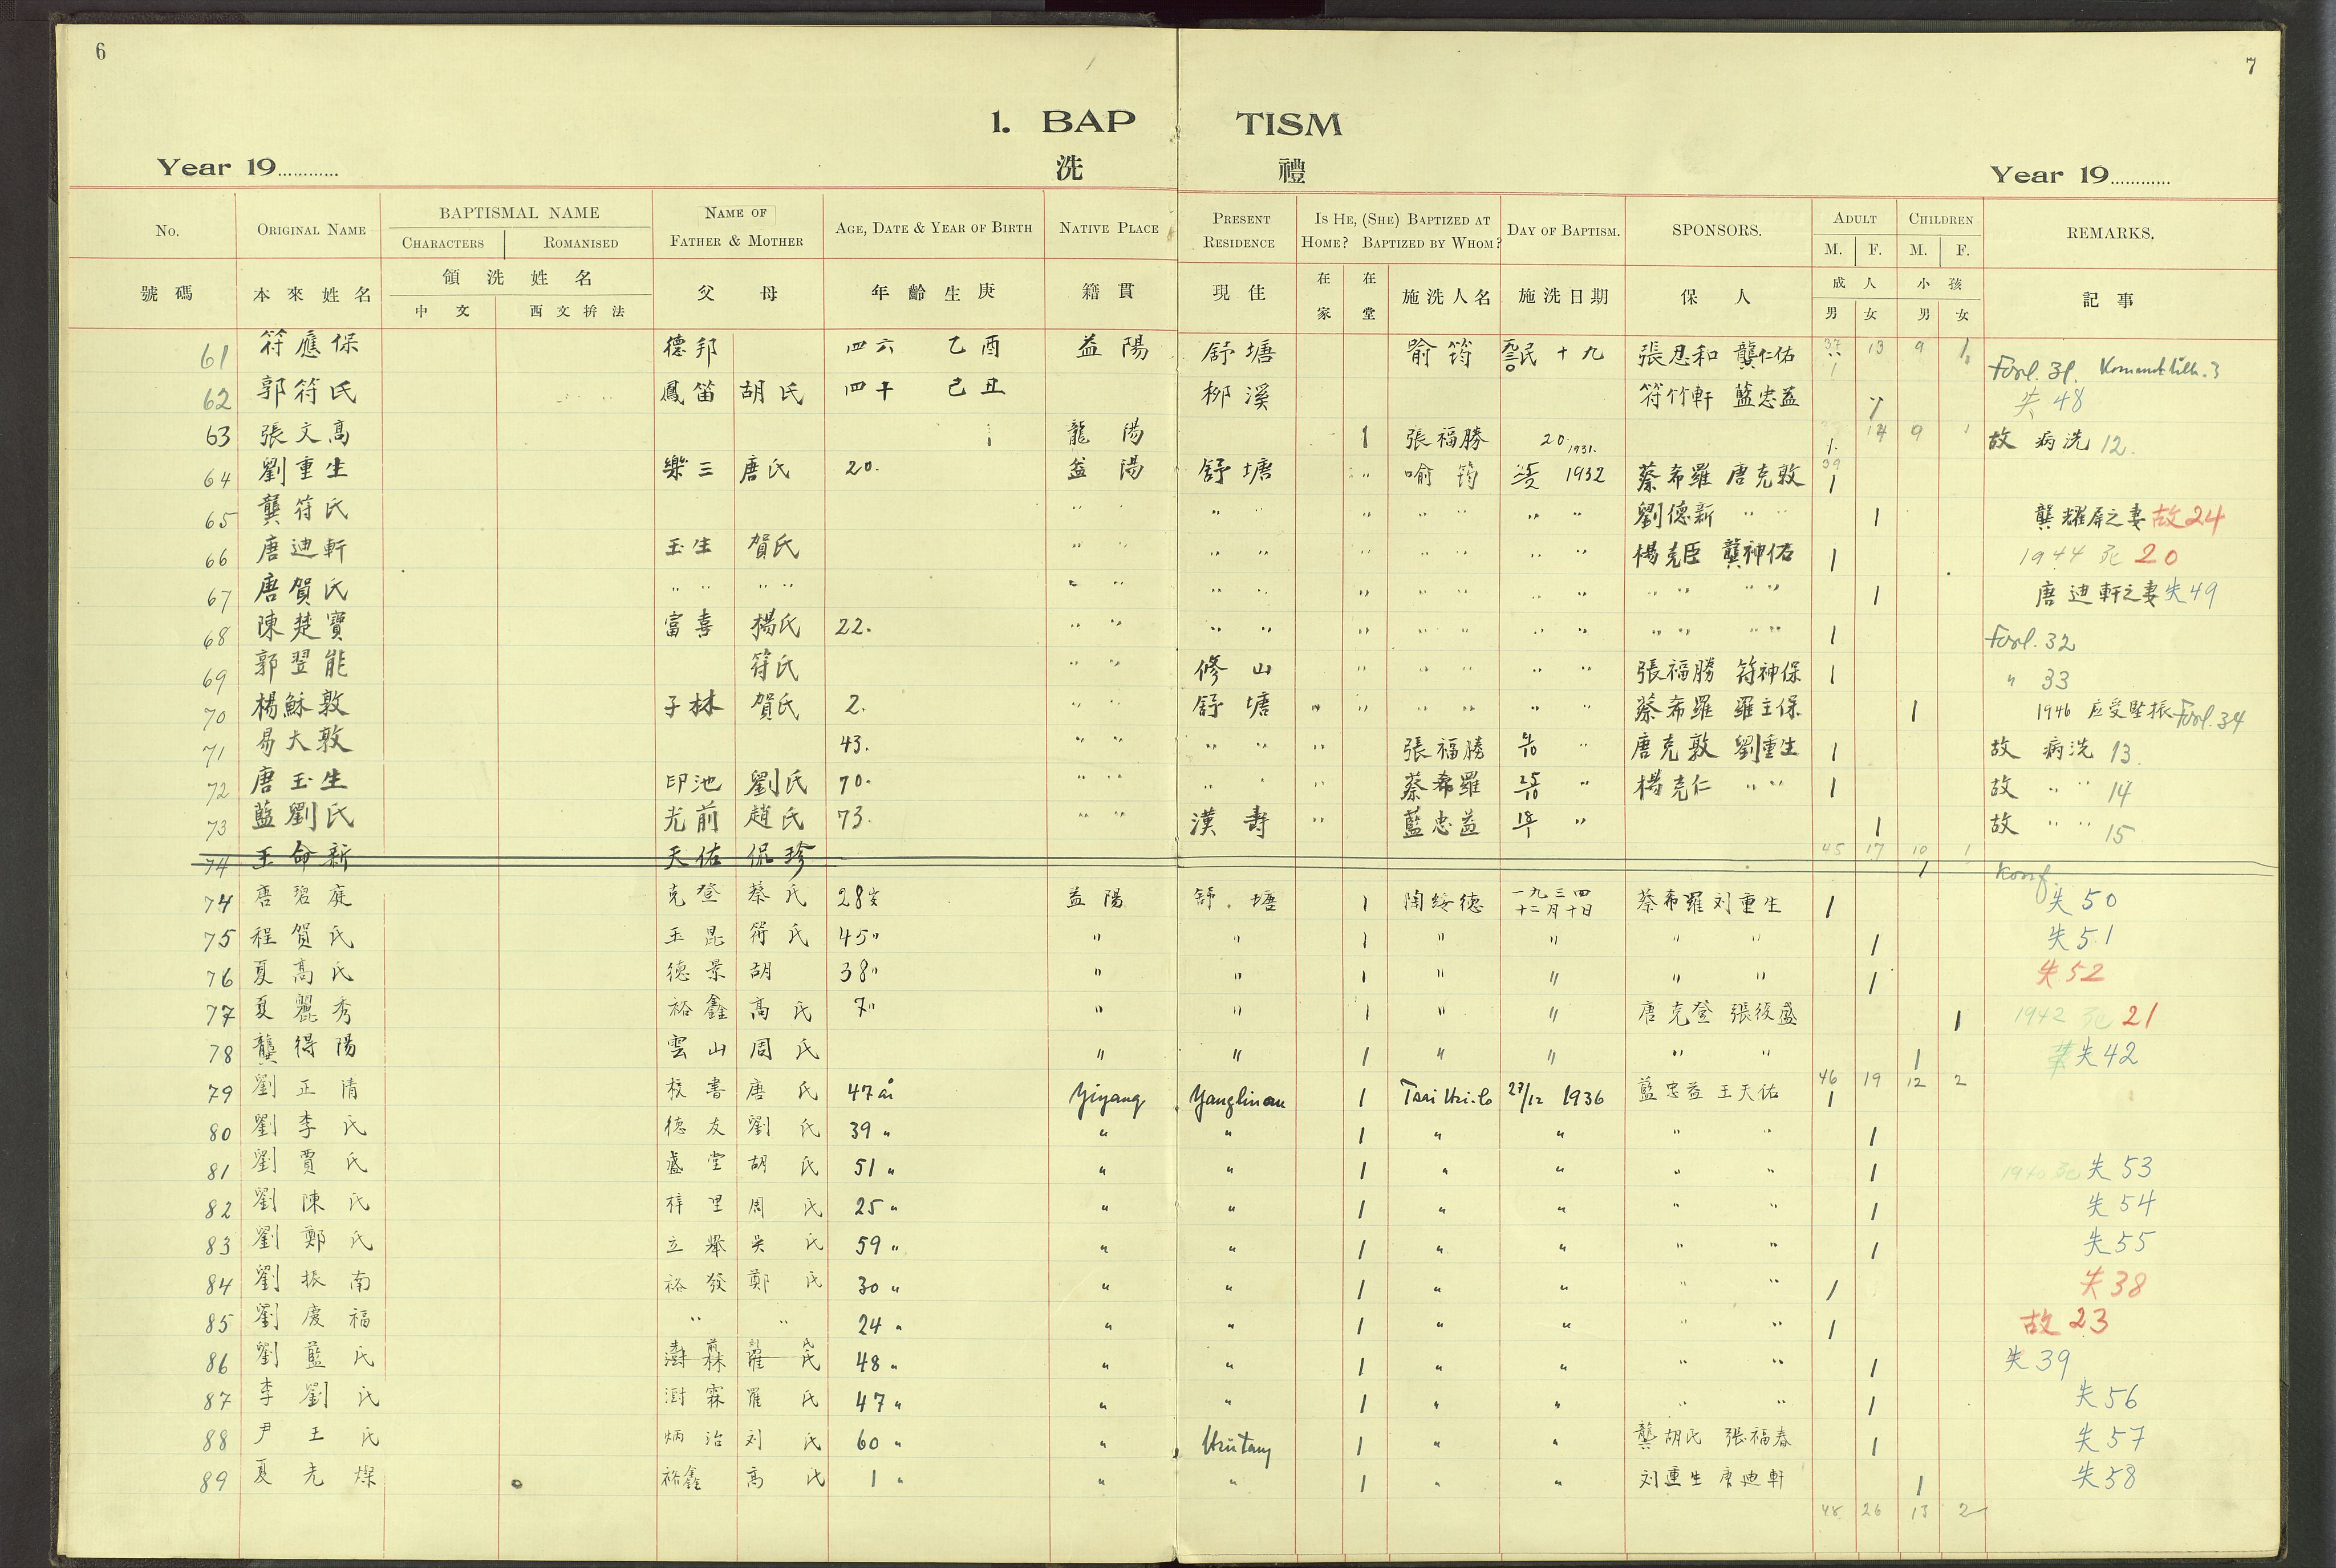 6
7
1. BAP TISM
Year 19............ 洗 禮 Year 19............
No. ORIGINAL NAME BAPTISMAL NAME CHARACTERS ROMANISED NAME OF FATHER & MOTHER AGE, DATE & YEAR OF BIRTH NATIVE PLACE PRESENT RESIDENCE IS HE, (SHE) BAPTIZED AT HOME? BAPTIZED BY WHOM? DAY OF BAPTISM. SPONSORS. ADULT M. F. CHILDREN M. F. REMARKS,
號碼 本來姓名 領洗姓名 中文 西文拚法 父母 年齡生庚 籍貫 現住 在家 在堂 施洗人名 施洗日期 保人 成人 男 女 小孩 男 女 記事
61 符應保 德邦 四六 乙酉 益陽 舒塘 喻筠 民十九 張忍和 龔仁佑 37 13 9 1 Forl. 31.
62 郭符氏 鳳笛 胡氏 四十 己丑 柳溪 符竹軒 藍忠益 失 48
63 張文高 龍陽 1 張福勝 20. 1931. 1. 14 9 1 故 病洗 12.
64 劉重生 樂三 唐氏 20. 益陽 舒塘 " 喻筠 1932 蔡希羅 唐克敦 39 1
65 龔符氏 " " " " " " " " " 劉德新 " " 1 龔耀屏之妻 故 24
66 唐迪軒 玉生 賀氏 " " " " " " " " " 楊克臣 龔神佑 1 1944 死 20
67 唐賀氏 " " " " " " " " " " " " " " " " " 1 唐迪軒之妻 失 49
68 陳楚寶 富喜 楊氏 22. " " " " " " " " " " " " " 1 Forl. 32
69 郭翌能 符氏 " " 修山 " " " " " 張福勝 符神保 1 " 33
70 楊穌敦 子林 賀氏 2. " " 舒塘 " " " " " " 蔡希羅 羅主保 1 1946 应受坚振 Forl. 34
71 易大敦 43. " " " " " 張福勝 6/10 " 唐克敦 劉重生 1 故 病洗 13.
72 唐玉生 印池 劉氏 70. " " " " 蔡希羅 25/10 " 楊克仁 " " 1 故 " " 14
73 藍劉氏 光前 趙氏 73. " " 漢壽 " 藍忠益 18/1 " 1 故 " " 15
74 王命新 天佑 侃珍 45 17 10 1 1 Konf.
74 唐碧庭 克登 蔡氏 28岁 益陽 舒塘 1 陶綏德 一九三四 十二月十日 蔡希羅 刘重生 1 失 50
75 程賀氏 玉昆 符氏 45" " " 1 " " " " 1 失 51
76 夏高氏 德景 胡 38" " " 1 " " " " 1 失 52
77 夏麗秀 裕鑫 高氏 7" " " 1 " " 唐克登 張後盛 1 1942 死 21
78 龔得陽 雲山 周氏 " " 1 " " " " 1 失 42
79 劉正清 校書 唐氏 47 år Yiyang Yanglinau 1 Tsai Hsi-lo 27/12 1936 藍忠益 王天佑 46 19 12 2 1
80 劉李氏 德友 劉氏 39 " " " 1 " " " " 1
81 劉賈氏 盛堂 胡氏 51 " " " 1 " " " " 1 1940 死 失 53
82 劉陳氏 梓里 周氏 25 " " " 1 " " " " 1 失 54
83 劉鄭氏 立舉 吳氏 59 " " " 1 " " " " 1 失 55
84 劉振南 裕發 鄭氏 30 " " " 1 " " " " 1 失 38
85 劉慶福 " " 24 " " " 1 " " " " 1 故 23
86 劉藍氏 48 " " " 1 " " " " 1 失 39
87 李劉氏 澍霖 羅氏 47 " " " 1 " " " " 1 失 56
88 尹王氏 炳治 刘氏 60 " " Hsütang 1 " " 龔胡氏 張福春 1 失 57
89 夏光燦 裕鑫 高氏 1 " " " 1 " " 刘重生 唐迪軒 1 失 58
48 26 13 2